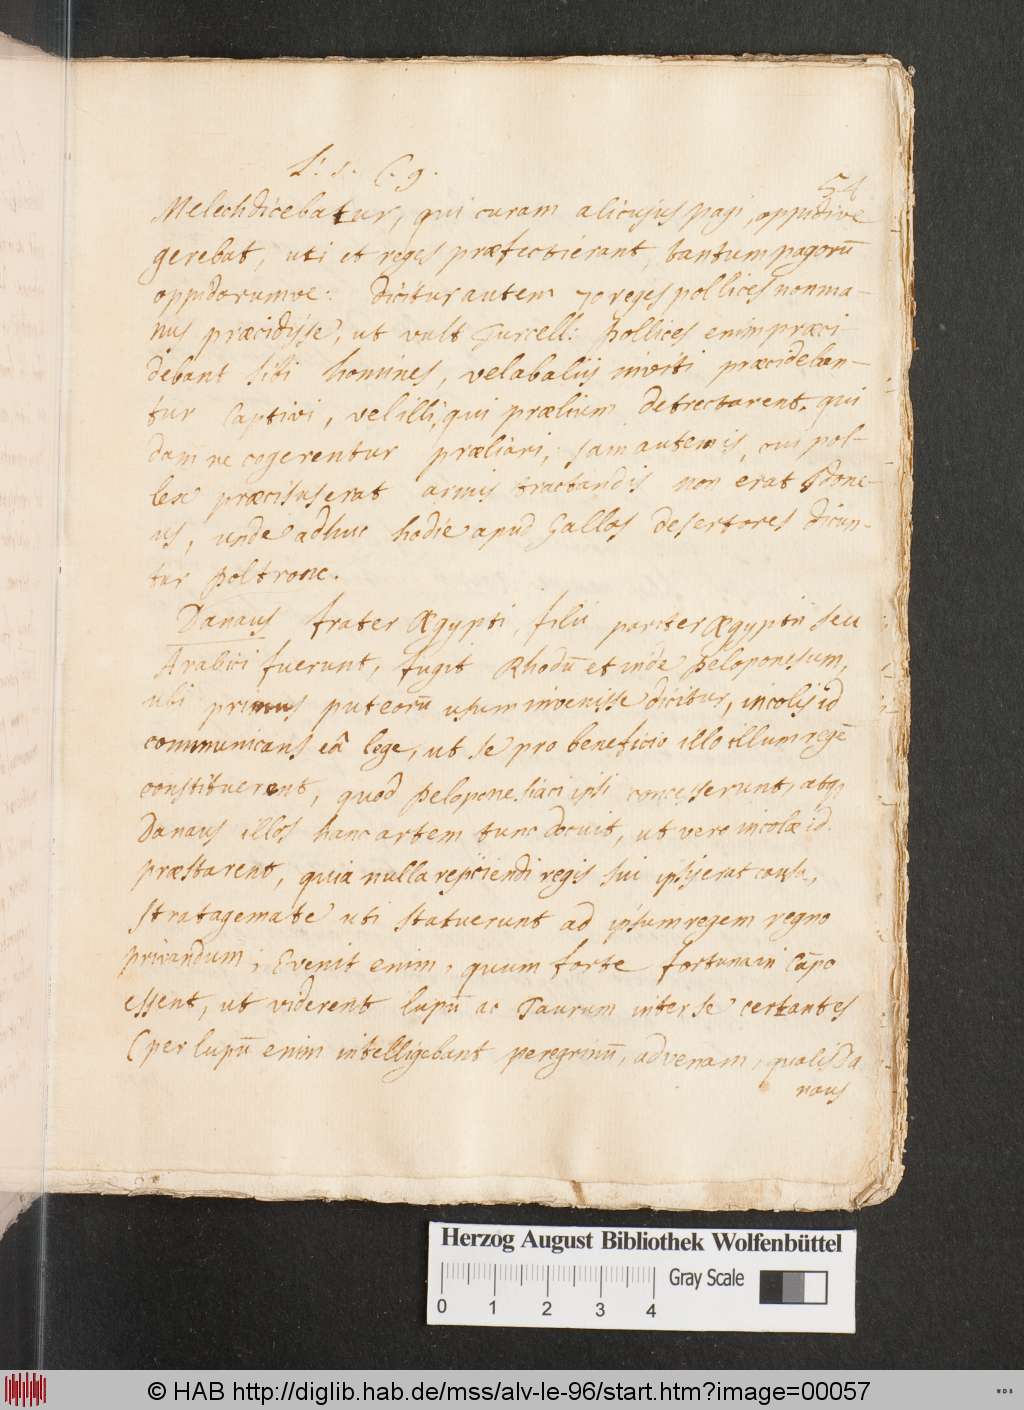 L: 1. C. 9.
54
Melech dicebatur, qui curam alicujus pagi, oppidive
gerebat, uti et reges præfecti erant, tantum pagorū
oppidorumve: dicitur autem 70 reges pollices non ma-
nus præcidisse, ut vult Purcell: Pollices enim præci-
debant sibi homines, vel ab aliis inviti præcideban-
tur Captivi, vel illi, qui prælium detrectarent, qui
dam ne cogerentur præliari, jam autem is, cui pol-
lex præcisus erat armis tractandis non erat Idone-
us, unde adhuc hodie apud Gallos desertores dicun-
tur Poltrone.
Danaus frater Ægypti, filii pariter Ægyptii seu
Arabici fuerunt, fugit Rhodū et inde Peloponesum,
ubi primus puteorū usum invenisse dicitur, incolis id
communicans eâ lege, ut se pro beneficio illo illum regē
constituerent, quod Peloponesiaci ipsi concesserunt, atq;
Danaus illos hanc artem tunc docuit, ut vero incolæ id
præstarent, quia nulla rejiciendi regis sui ipsis erat causa,
stratagemate uti statuerunt ad ipsum regem regno
privandum; Evenit enim, quum forte fortuna in Cāpo
essent, ut viderent lupū ac Taurum inter se certantes
(per lupū enim intelligebant peregrinū, advenam, qualis Da
naus
Herzog August Bibliothek Wolfenbüttel
0 1 2 3 4
Gray Scale
© HAB http://diglib.hab.de/mss/alv-le-96/start.htm?image=00057